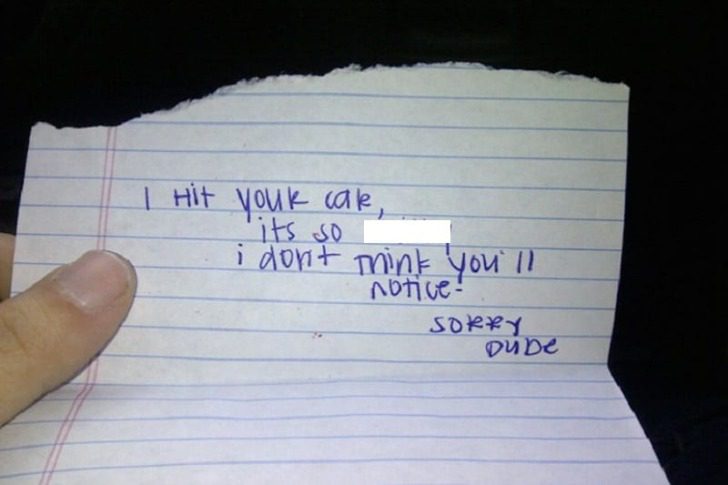 I Hit your car,
its so
i don't think you'll
notice-
sorry
Dude